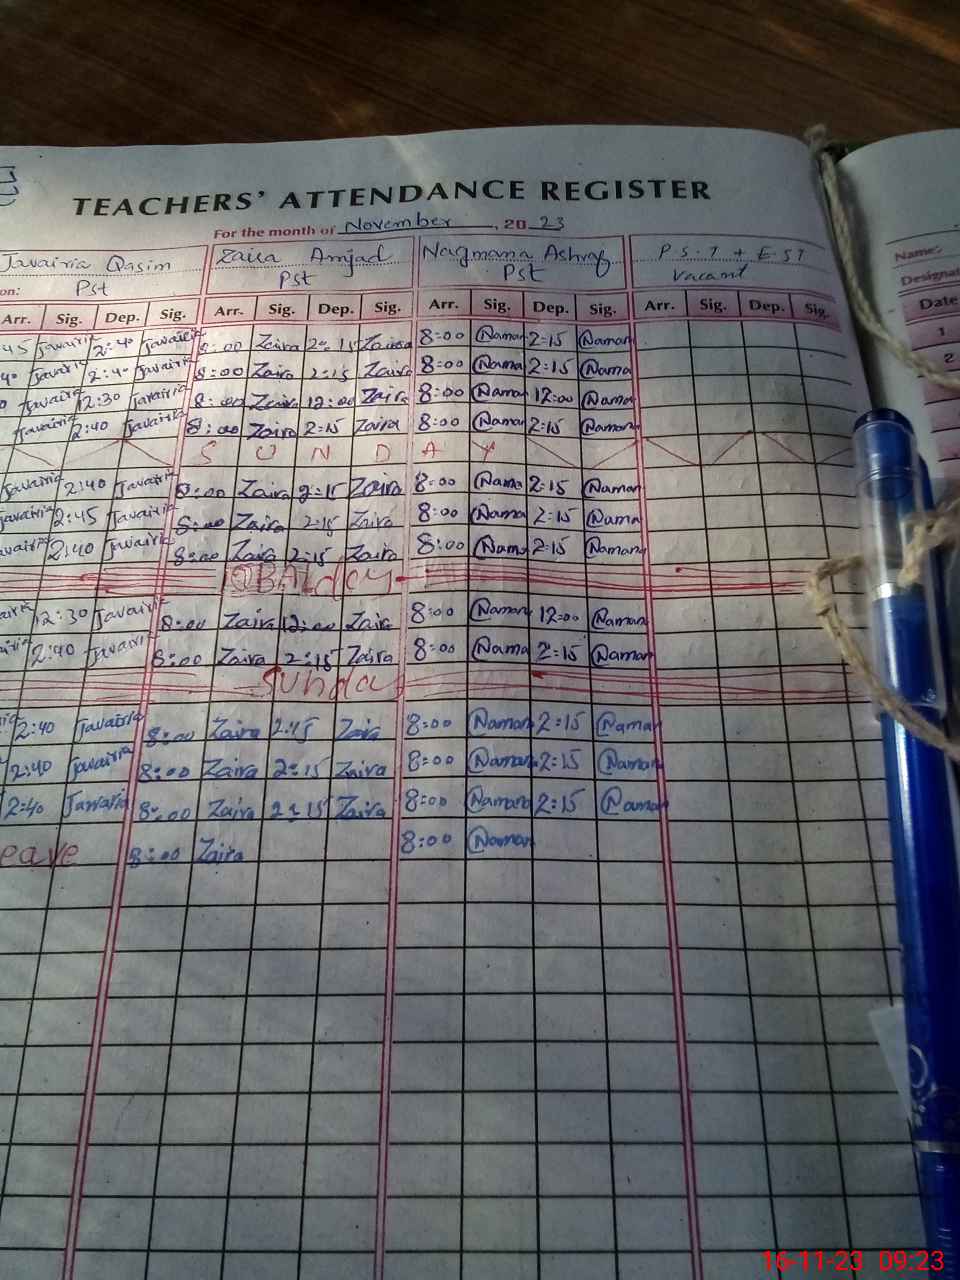 TEACHERS' ATTENDANCE REGISTER
For the month of November, 20 23
Javairia Qasim Zaira Amjad Nagmana Ashraf P.S.T + E.ST
on: Pst Pst Pst vacant
Arr. Sig. Dep. Sig. Arr. Sig. Dep. Sig. Arr. Sig. Dep. Sig. Arr. Sig. Dep. Sig.
45 Javairia 2:40 Javairia 8:00 Zaira 2:15 Zaira 8:00 Naman 2:15 Naman
40 Javairia 2:40 Javairia 8:00 Zaira 2:15 Zaira 8:00 Nama 2:15 Nama
Javairia 12:30 Javairia 8:00 Zaira 12:00 Zaira 8:00 Nama 12:00 Nama
Javairia 2:40 Javairia 8:00 Zaira 2:15 Zaira 8:00 Nama 2:15 Nama
S U N D A Y
Javairia 2:40 Javairia 8:00 Zaira 2:15 Zaira 8:00 Nama 2:15 Naman
Javairia 2:45 Javairia 8:00 Zaira 2:15 Zaira 8:00 Nama 2:15 Nama
avairia 2:40 Javairia 8:00 Zaira 2:15 Zaira 8:00 Nama 2:15 Naman
airia 12:30 Javairia 8:00 Zaira 12:00 Zaira 8:00 Naman 12:00 Naman
2:40 Javairia 8:00 Zaira 2:15 Zaira 8:00 Nama 2:15 Naman
Sunday
2:40 Javairia 8:00 Zaira 2:15 Zaira 8:00 Naman 2:15 Naman
2:40 Javairia 8:00 Zaira 2:15 Zaira 8:00 Naman 2:15 Naman
2:40 Javairia 8:00 Zaira 2:15 Zaira 8:00 Naman 2:15 Naman
eave 8:00 Zaira 8:00 Naman
Name:
Designat
Date
1
2
16-11-23 09:23